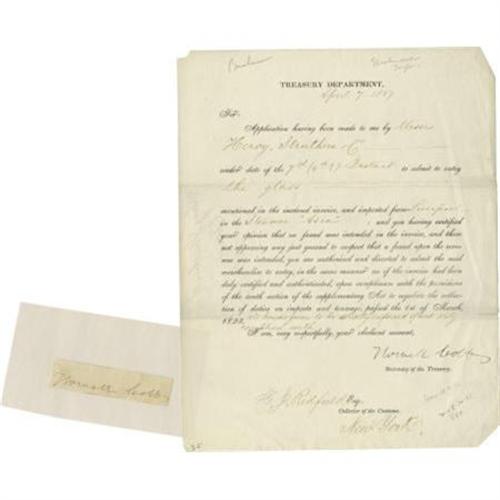 TREASURY DEPARTMENT,
April 7 1857
Sir:
Application having been made to me by Messrs
Heroy, Struthers & Co
under date of the 7th Instant to admit to entry
the glass
mentioned in the inclosed invoice, and imported from Liverpool
in the Steamer "Asia", and you having certified
your opinion that no fraud was intended in the invoice, and there
not appearing any just ground to suspect that a fraud upon the reve-
nue was intended, you are authorized and directed to admit the said
merchandise to entry, in the same manner as if the invoice had been
duly certified and authenticated, upon compliance with the provisions
of the tenth section of the supplementary Act to regulate the collec-
tion of duties on imports and tonnage, passed the 1st of March,
1823.
I am, very respectfully, your obedient servant,
Howell Cobb
Secretary of the Treasury.
H. J. Redfield Esq.
Collector of the Customs.
New York.
Howell Cobb